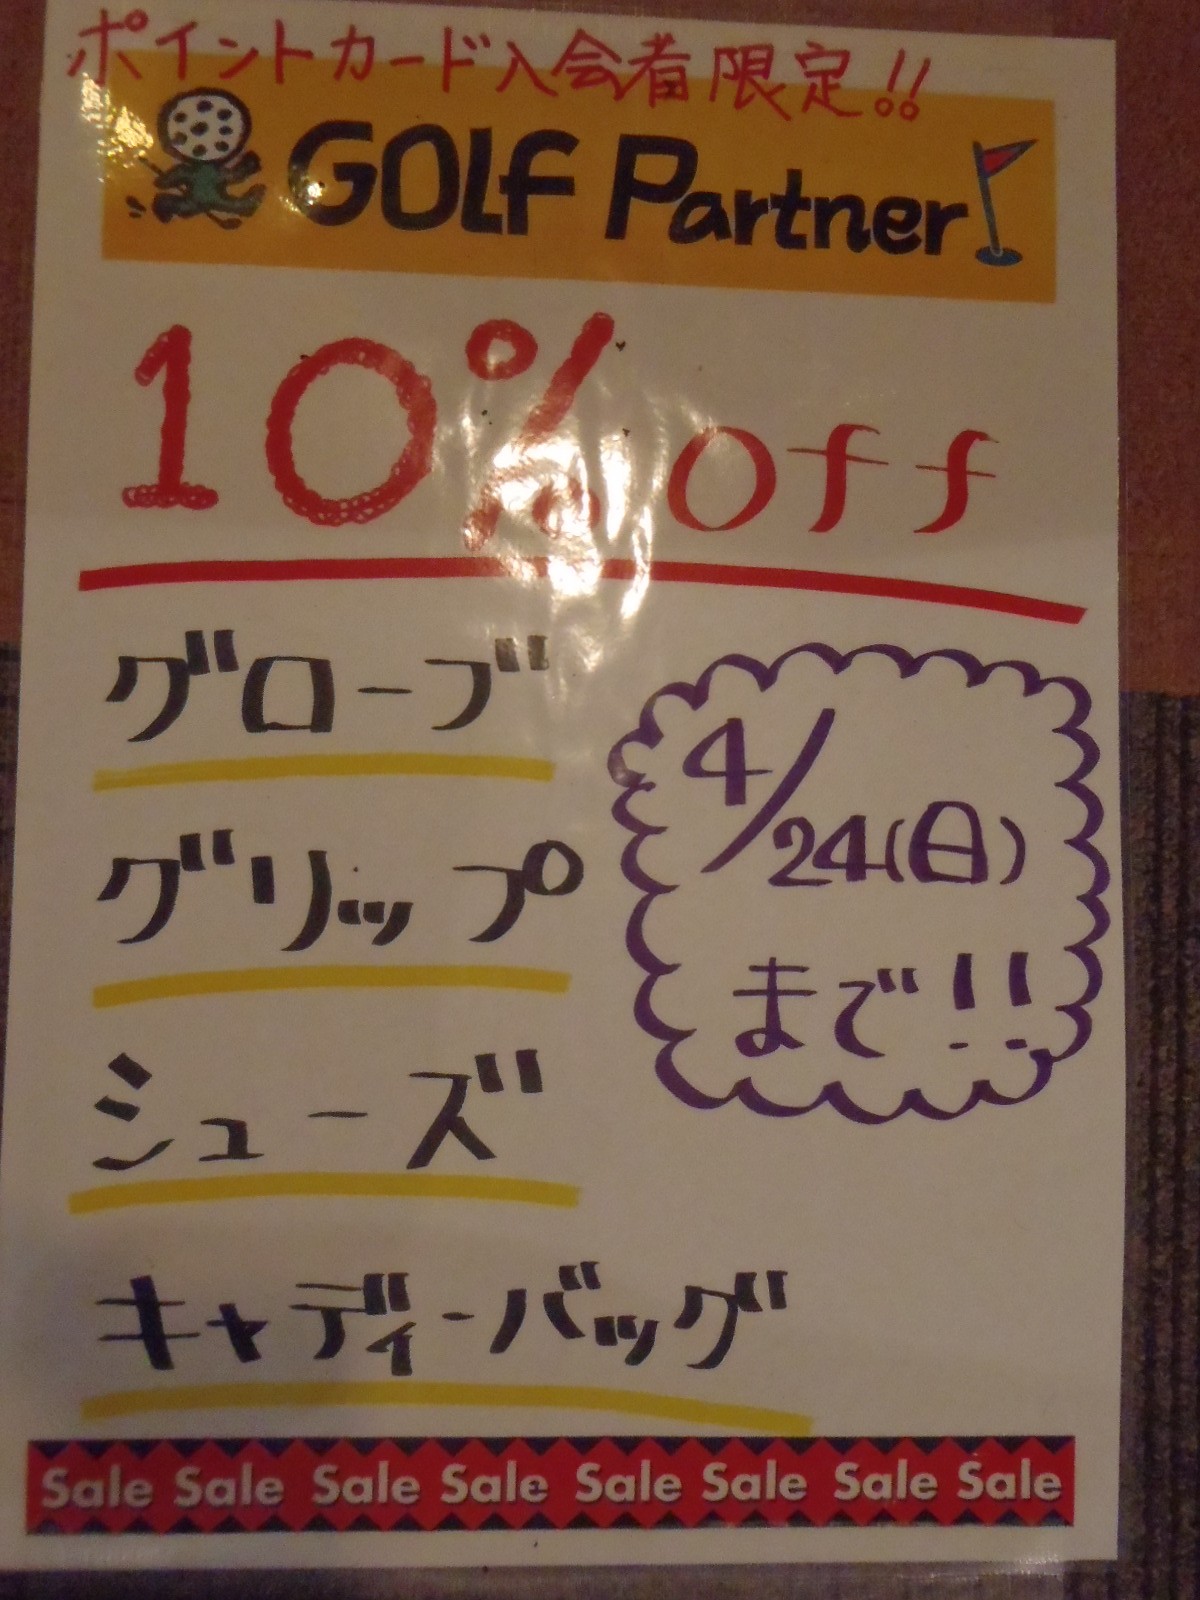 ポイントカード入会者限定!!
GOLF Partner
10% off
グローブ
グリップ
シューズ
キャディーバッグ
4/24(日)
まで!!
Sale Sale Sale Sale Sale Sale Sale Sale